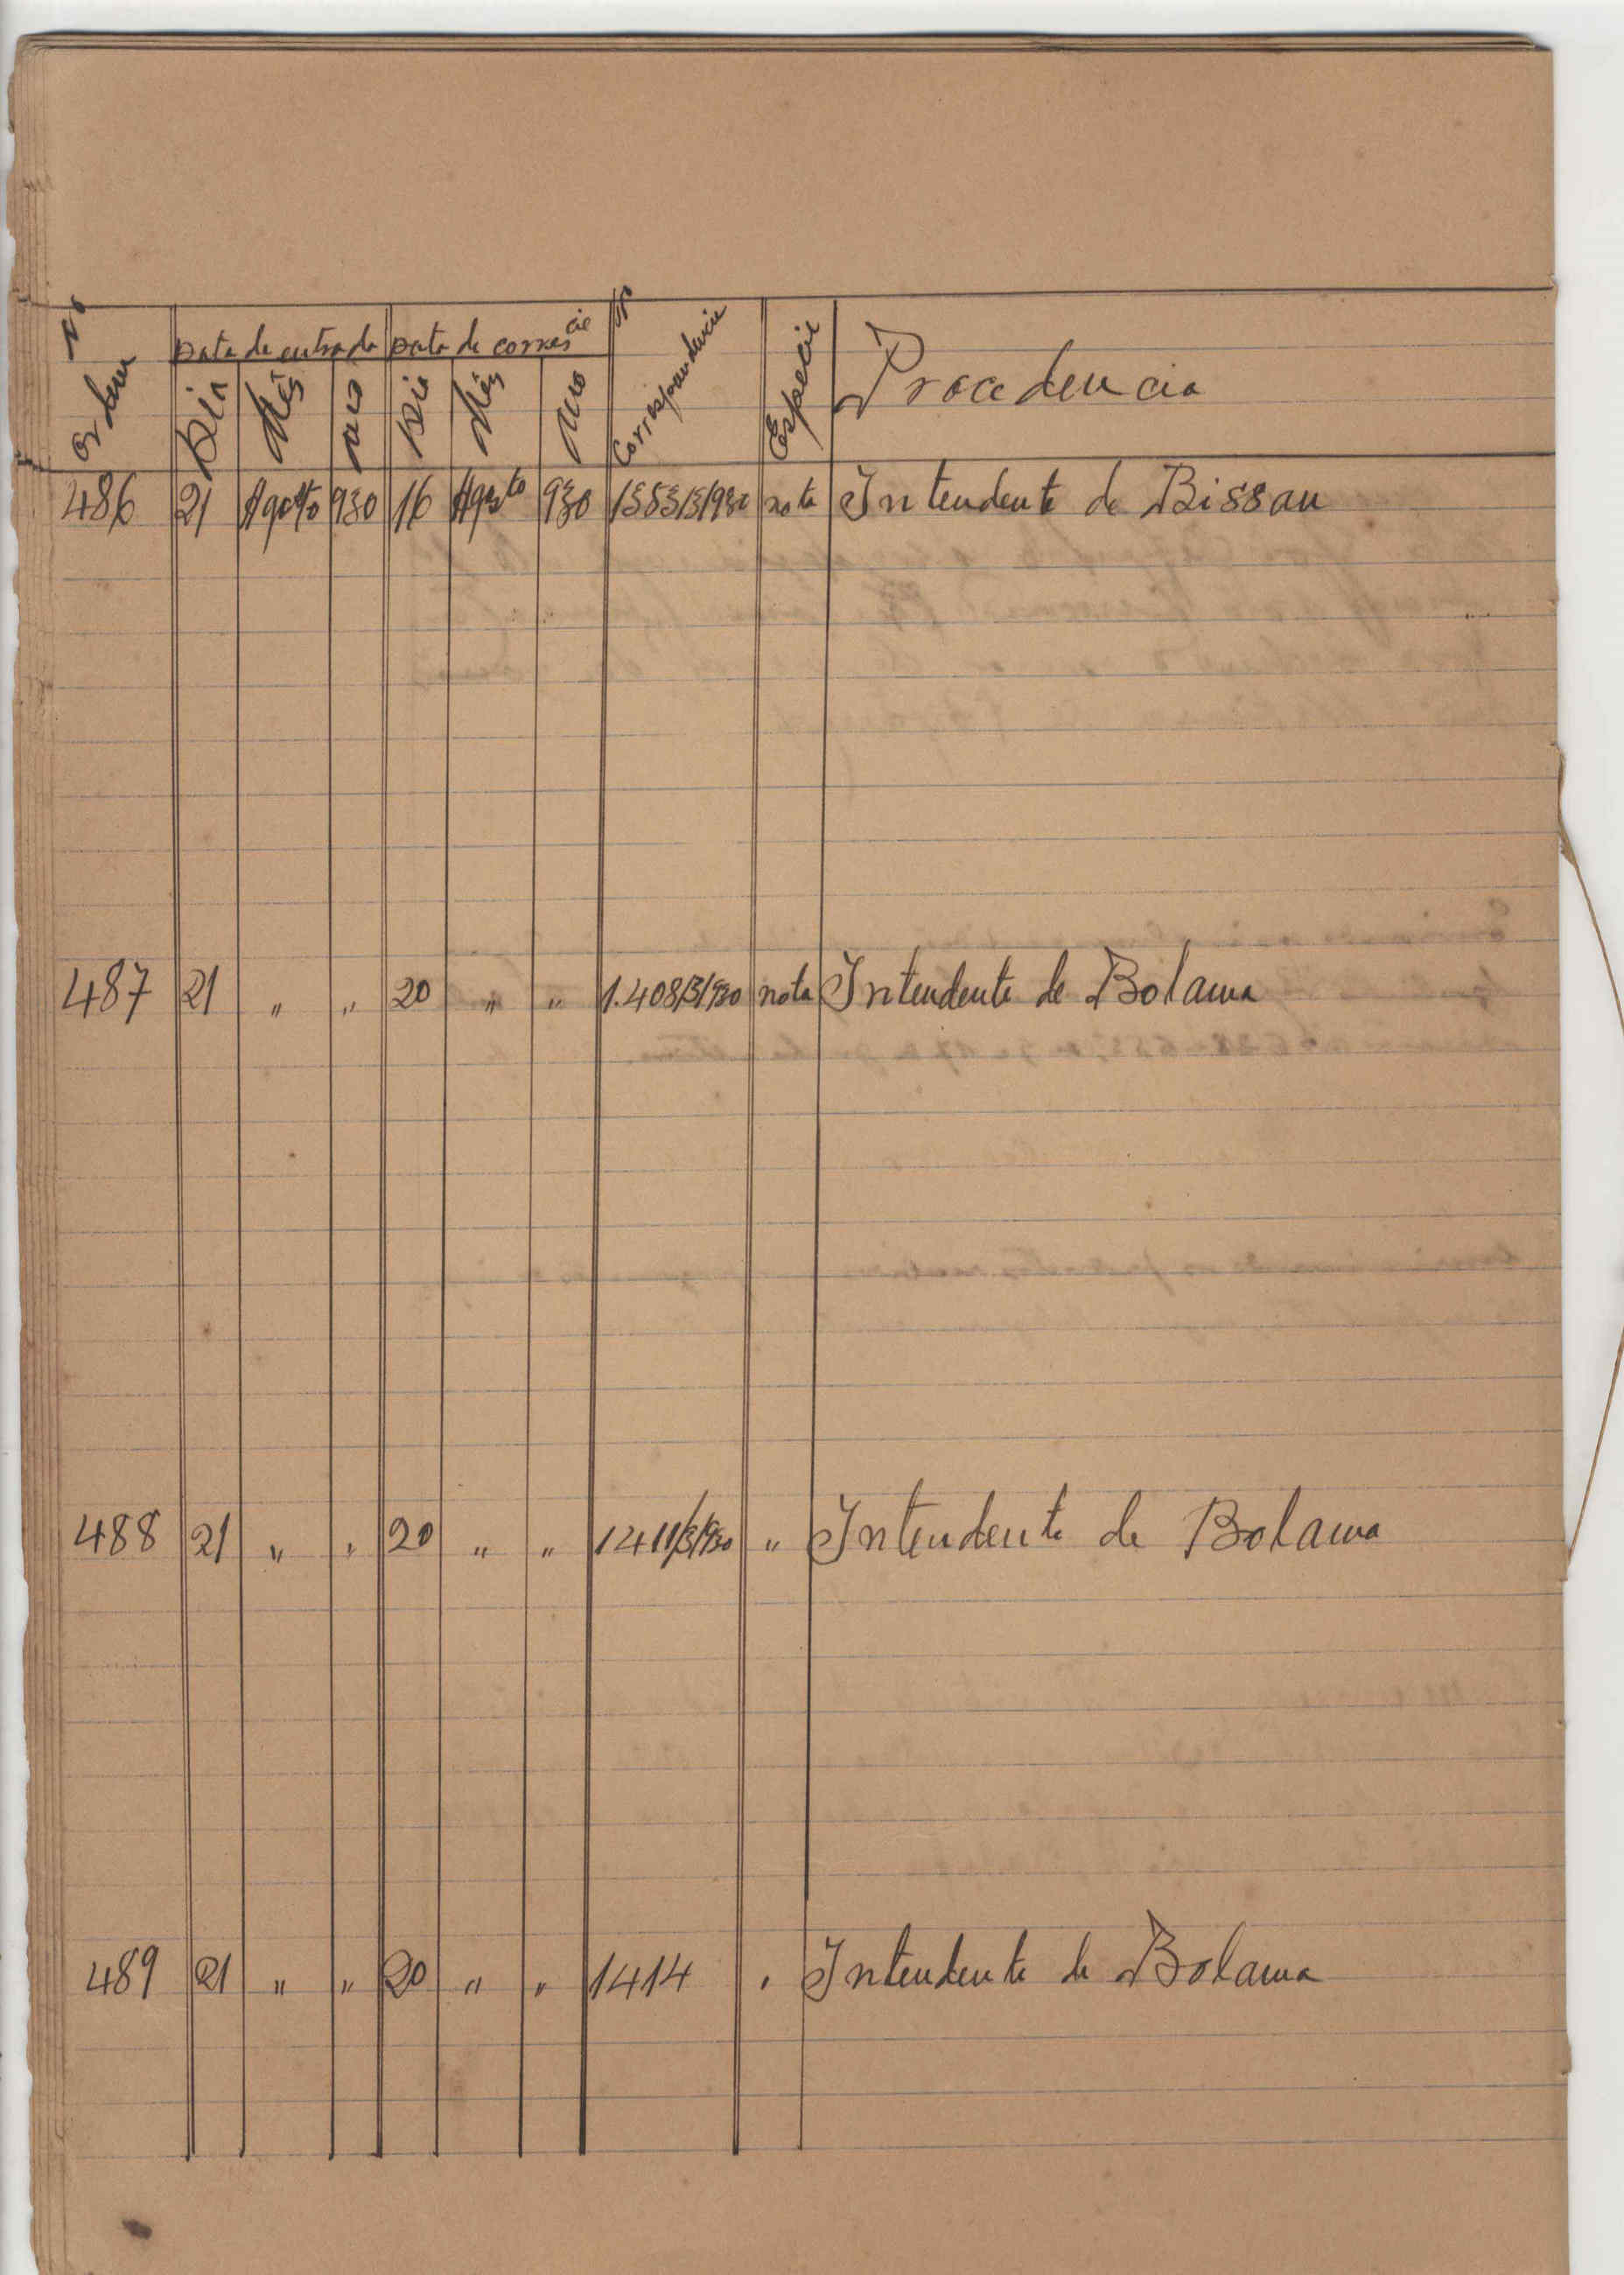 Nº Ordem Data de entrada Data de corres.cia Nº Correspondencia Especie Procedencia
Dia Mês Ano Dia Mês Ano
486 21 Agosto 930 16 Agosto 930 1353/3/930 nota Intendente de Bissau
487 21 " " 20 " " 1.408/3/930 nota Intendente de Bolama
488 21 " " 20 " " 1411/3/930 " Intendente de Bolama
489 21 " " 20 " " 1414 " Intendente de Bolama